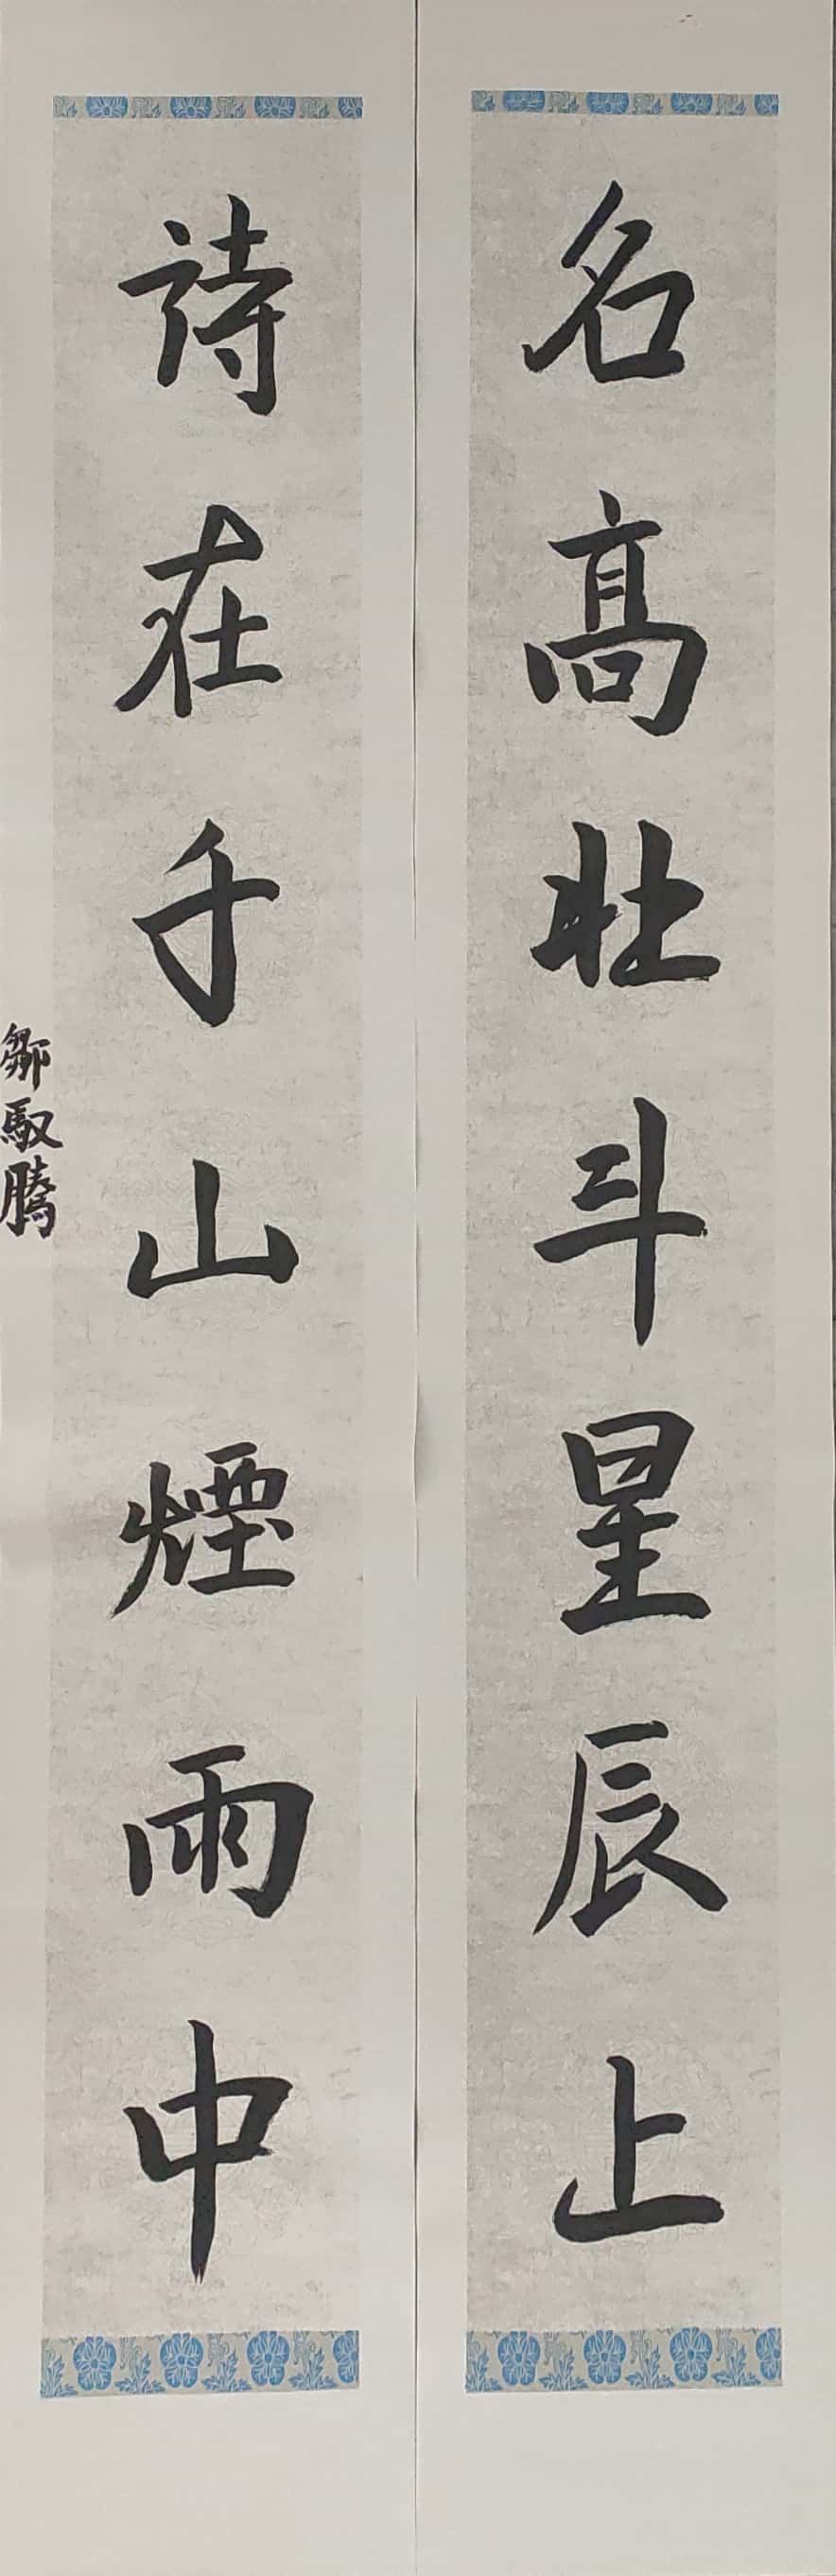 名高壯斗星辰上
詩在千山煙雨中
鄒馭騰